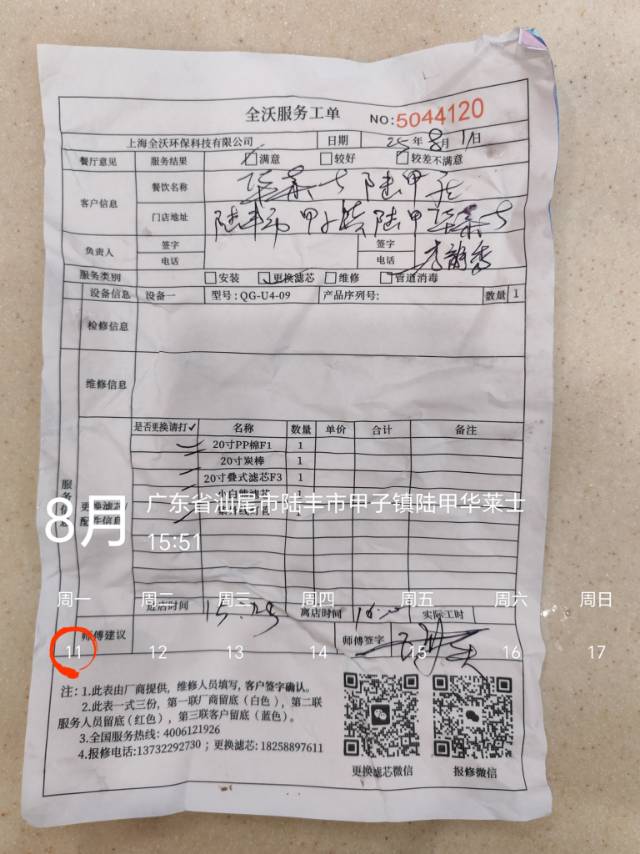 全沃服务工单 NO:5044120
上海全沃环保科技有限公司 日期 25年8月11日
餐厅意见 服务结果 满意 较好 较差不满意
客户信息 餐饮名称 华莱士陆甲店
门店地址 陆丰市甲子镇陆甲华莱士
负责人 签字 签字
电话 电话
服务类别 安装 更换滤芯 维修 管道消毒
设备信息 设备一 型号:QG-U4-09 产品序列号: 数量 1
检修信息
维修信息
是否更换请打✓ 名称 数量 单价 合计 备注
20寸PP棉F1 1
20寸炭棒 1
20寸叠式滤芯F3 1
1
1
更换滤芯/
配件信息
8月 广东省汕尾市陆丰市甲子镇陆甲华莱士
15:51
周一 周二 周三 周四 周五 周六 周日
进店时间 离店时间 实际工时
师傅建议 师傅签字
11 12 13 14 15 16 17
注:1.此表由厂商提供,维修人员填写,客户签字确认。
2.此表一式三份,第一联厂商留底(白色),第二联
服务人员留底(红色),第三联客户留底(蓝色)。
3.全国服务热线:4006121926
4.报修电话:13732292730;更换滤芯:18258897611
更换滤芯微信 报修微信